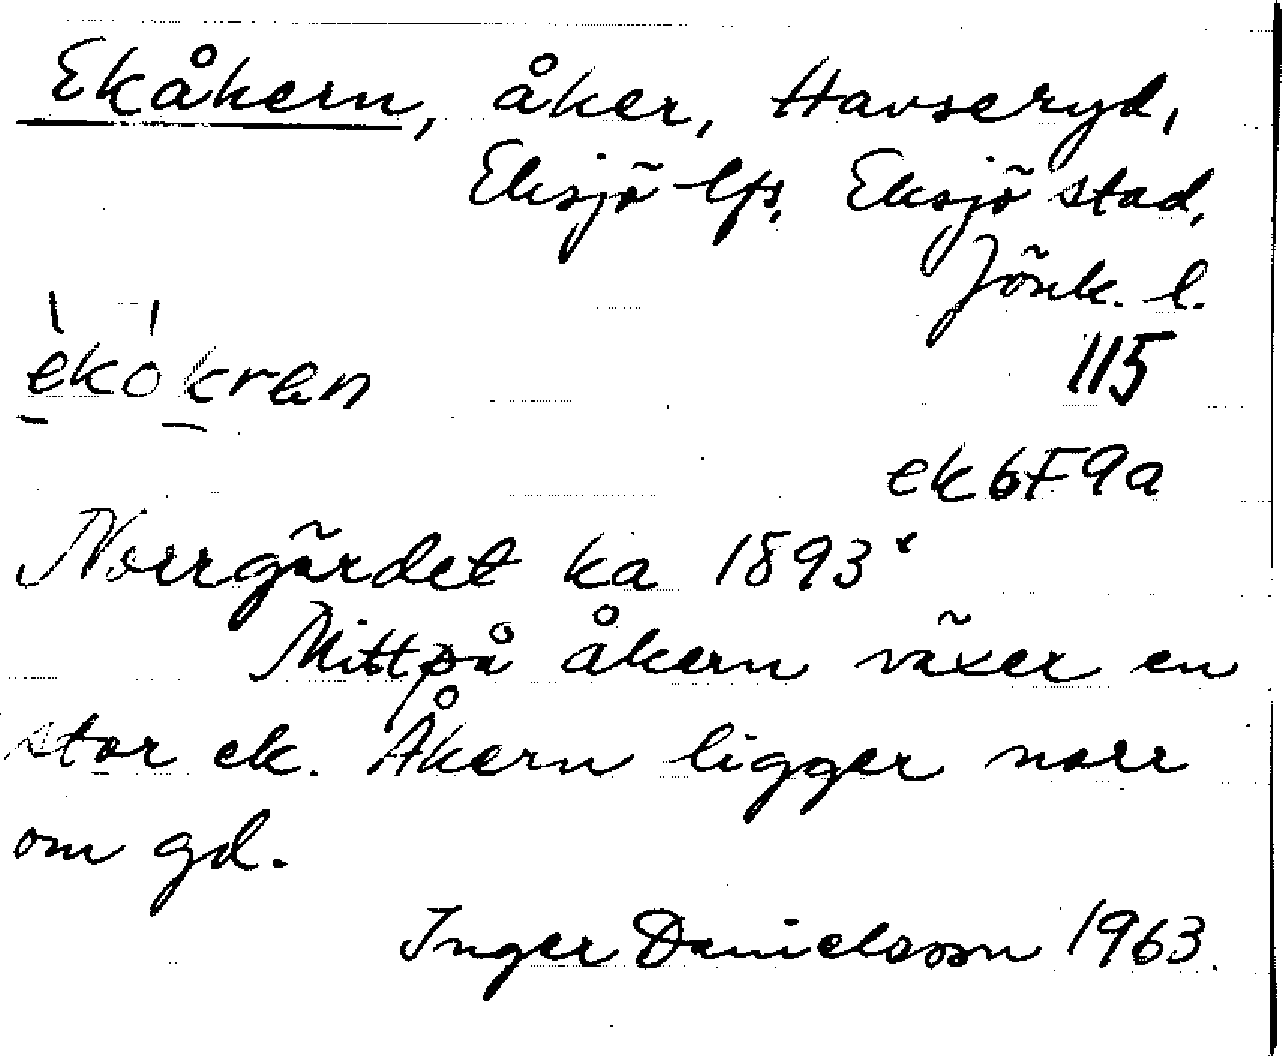 Ekåkern, åker, Havseryd,
Eksjö lfs, Eksjö stad,
Jönk. l.
ekokran
115
ek 6F9a
Norrgärdet ka 1893
Mitt på åkern växer en
stor ek. Åkern ligger norr
om gd.
Inger Danielsson 1963.